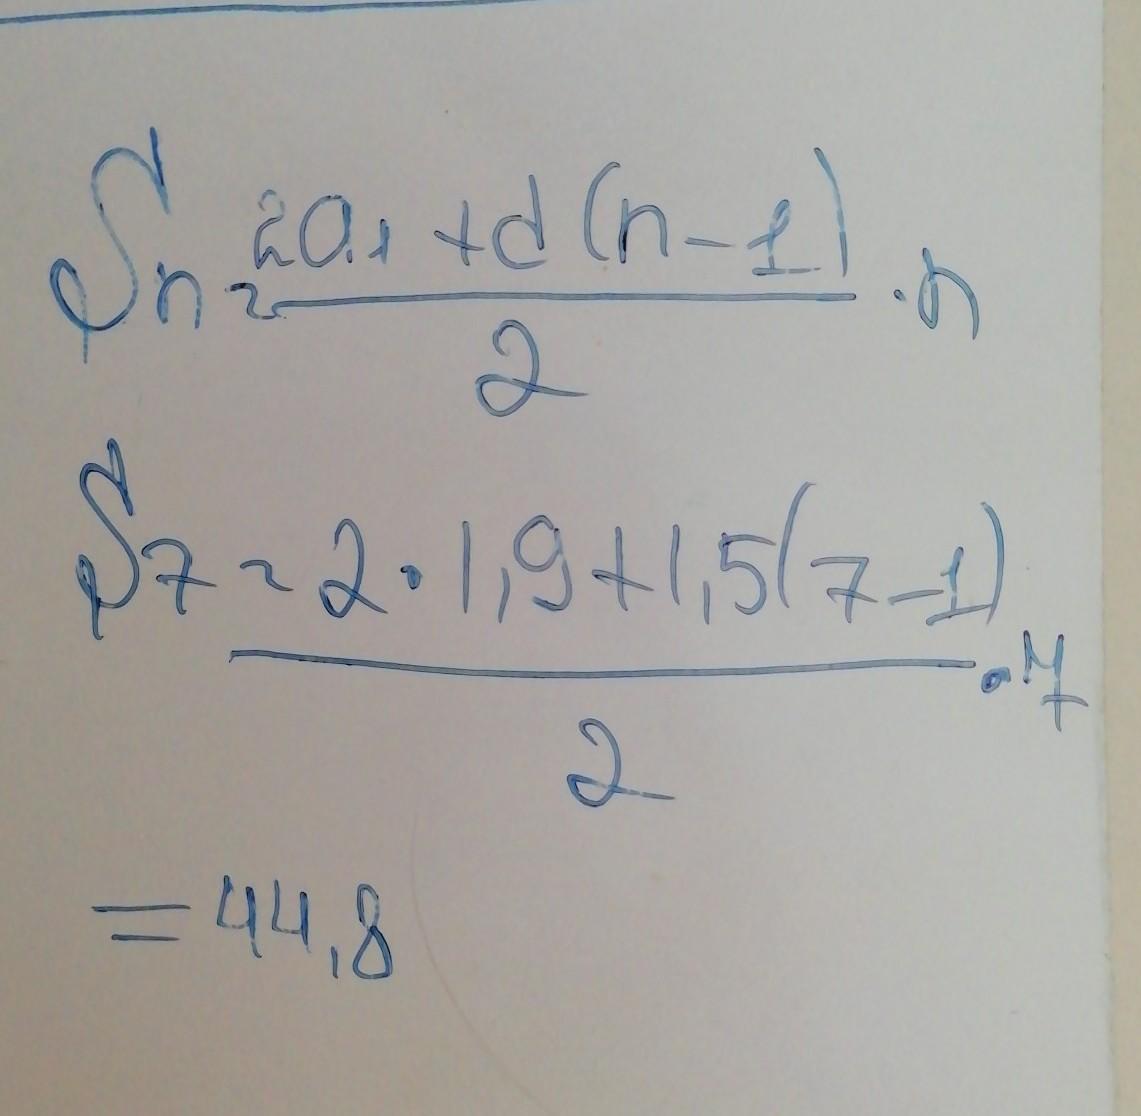 Sn = 2a1 + d(n-1) / 2 · n
S7 = 2 · 1,9 + 1,5(7-1) / 2 · 7
= 44,8